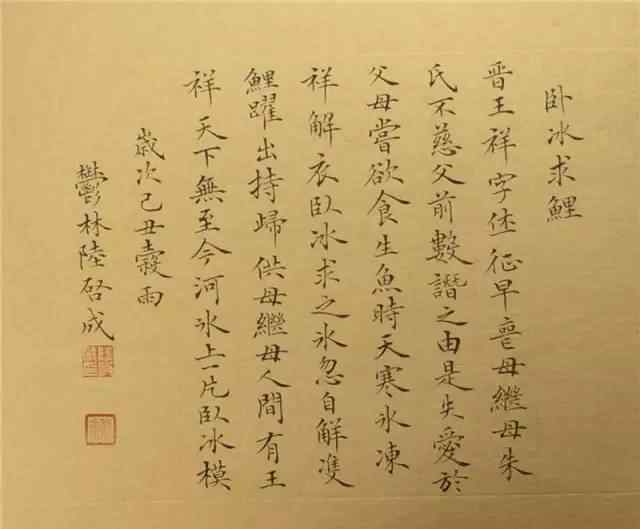 卧冰求鯉
晋王祥字休征早喪母繼母朱
氏不慈父前數譖之由是失愛於
父母嘗欲食生魚時天寒氷凍
祥解衣臥冰求之氷忽自解雙
鯉躍出持歸供母繼母人間有王
祥天下無至今河氷上一片臥冰模
歲次己丑穀雨
鬱林陸啓成